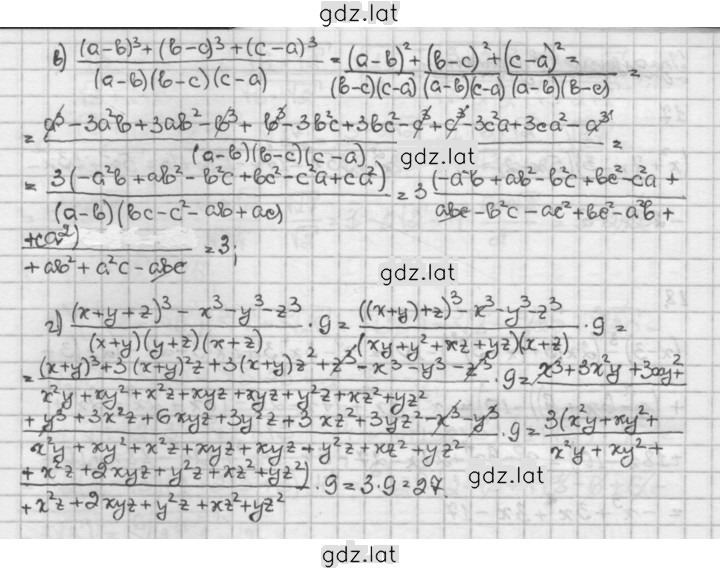 gdz.lat
в) ((a-b)³+(b-c)³+(c-a)³)/((a-b)(b-c)(c-a)) = (a-b)²/((b-c)(c-a)) + (b-c)²/((a-b)(c-a)) + (c-a)²=/((a-b)(b-c)) =
= (a³-3a²b+3ab²-b³+b³-3b²c+3bc²-c³+c³-3c²a+3ca²-a³)/((a-b)(b-c)(c-a)) =
gdz.lat
= 3(-a²b+ab²-b²c+bc²-c²a+ca²)/((a-b)(bc-c²-ab+ac)) = 3 (-a²b+ab²-b²c+bc²-c²a+/abc-b²c-ac²+bc²-a²b+
+ca²)/+ab²+a²c-abc = 3;
gdz.lat
г) ((x+y+z)³-x³-y³-z³)/((x+y)(y+z)(x+z)) · 9 = (((x+y)+z)³-x³-y³-z³)/((xy+y²+xz+yz)(x+z)) · 9 =
= ((x+y)³+3(x+y)²z+3(x+y)z²+z³-x³-y³-z³)/(x²y+xy²+x²z+xyz+xyz+y²z+xz²+yz²) · 9 = x³+3x²y+3xy²+
+y³+3x²z+6xyz+3y²z+3xz²+3yz²-x³-y³/x²y+xy²+x²z+xyz+xyz+y²z+xz²+yz² · 9 = 3(x²y+xy²+/x²y+xy²+
+x²z+2xyz+y²z+xz²+yz²)/+x²z+2xyz+y²z+xz²+yz² · 9 = 3·9 = 27.
gdz.lat
gdz.lat